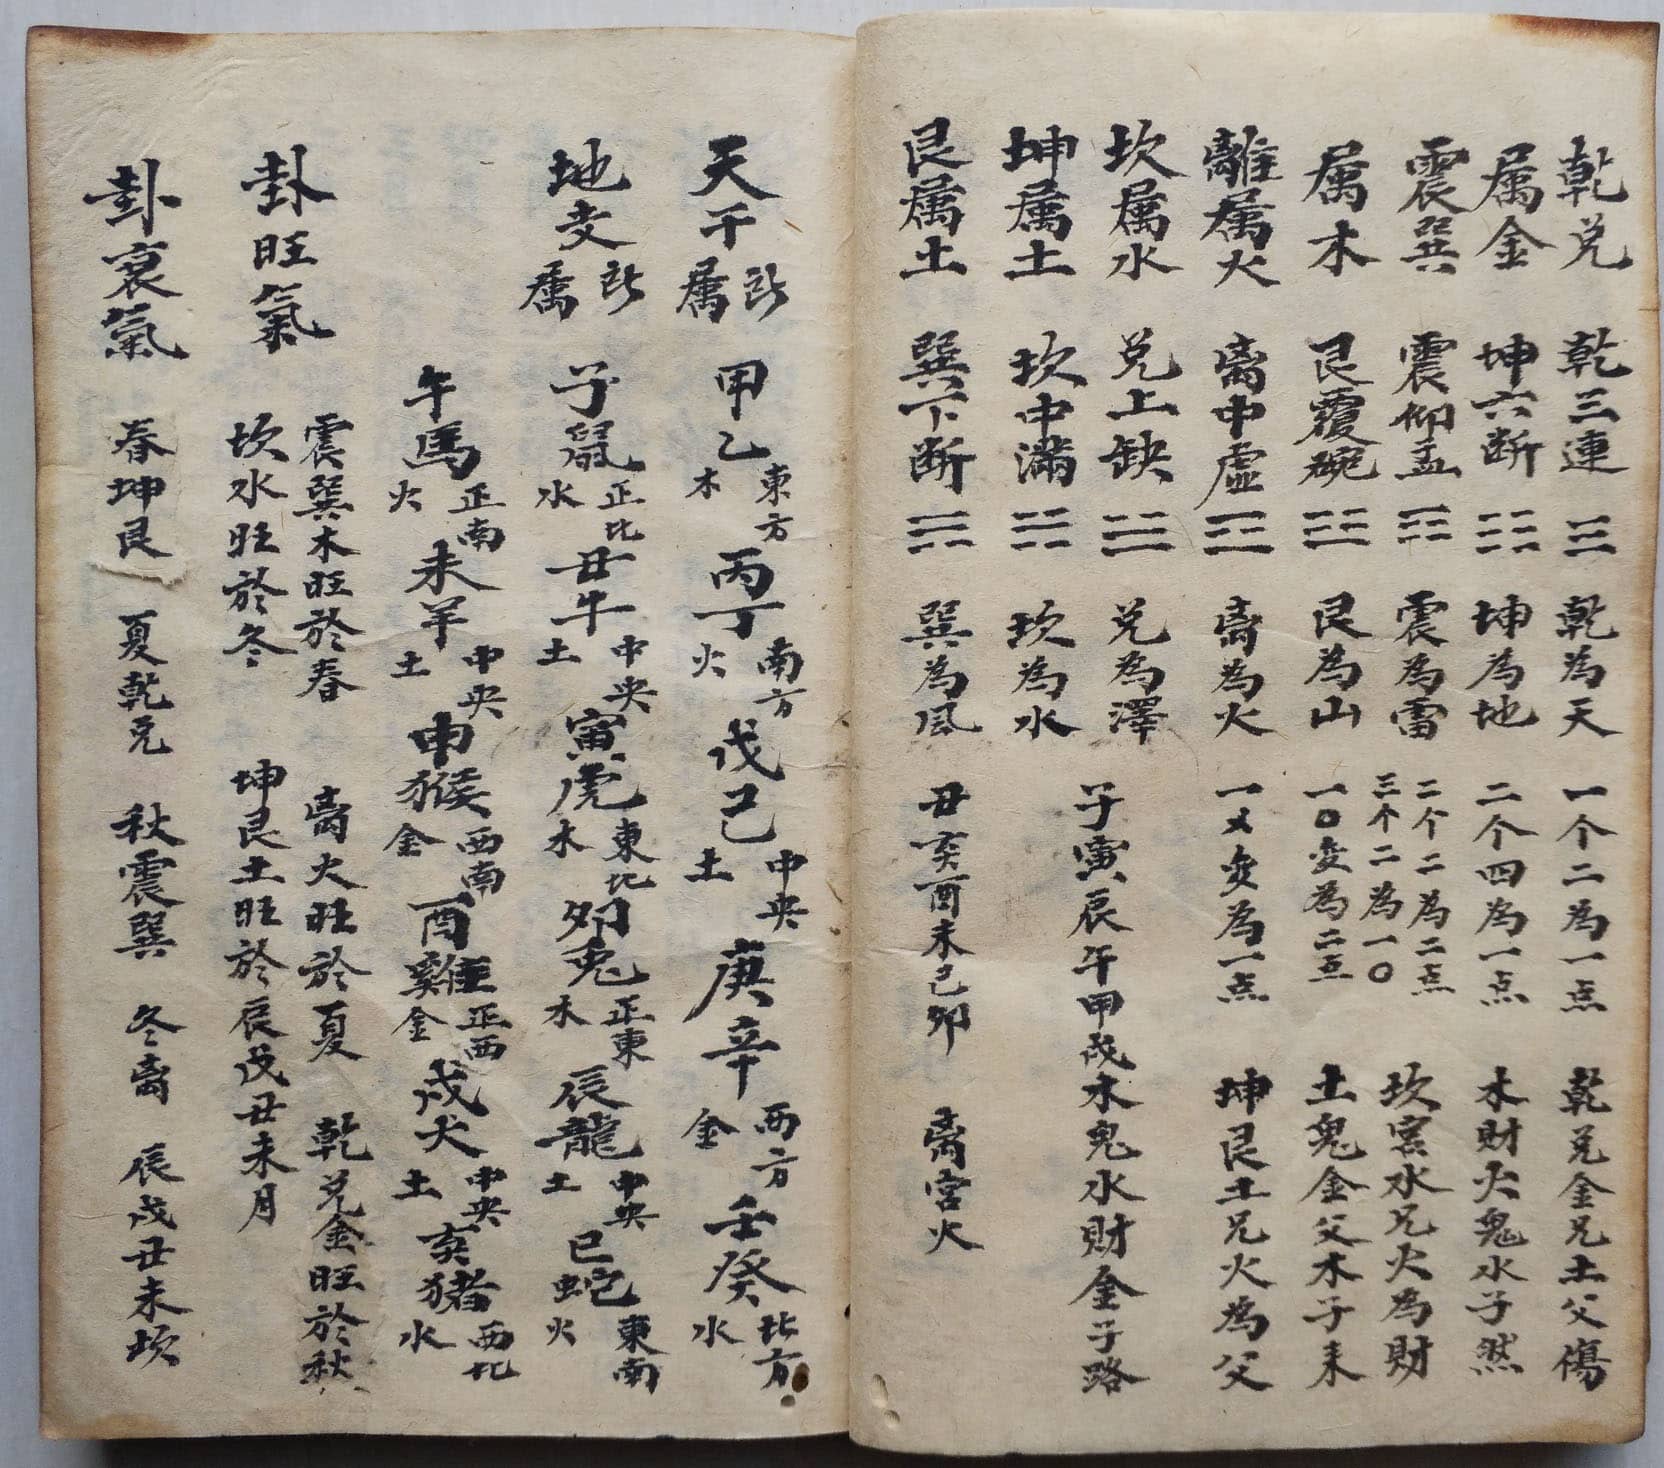 乾兑 乾三連 ☰ 乾為天 一个二為一点 乾兑金兄土父傷
属金 坤六断 ☷ 坤為地 二个四為一点 木財火鬼水子然
震巽 震仰盂 ☳ 震為雷 二个二為二点 三个二為一〇 坎宫水兄火為財
属木 艮覆碗 ☶ 艮為山 一〇变為二点 土鬼金父木子来
離属火 离中虚 ☲ 离為火 一乂变為一点 坤艮土兄火為父
坎属水 兑上缺 ☱ 兑為澤 子寅辰午甲戌木鬼水財金子路
坤属土 坎中满 ☵ 坎為水
艮属土 巽下断 ☴ 巽為風 丑亥酉未己卯 离宫火
天干所属 甲乙東方木 丙丁南方火 戊己中央土 庚辛西方金 壬癸北方水
地支所属 子鼠正北水 丑牛中央土 寅虎東北木 卯兎正東木 辰龍中央土 巳蛇東南火
午馬正南火 未羊中央土 申猴西南金 酉雞正西金 戌犬中央土 亥猪西北水
卦旺氣 震巽木旺於春 离火旺於夏 乾兑金旺於秋
坎水旺於冬 坤艮土旺於辰戌丑未月
卦衰氣 春坤艮 夏乾兑 秋震巽 冬离 辰戌丑未坎